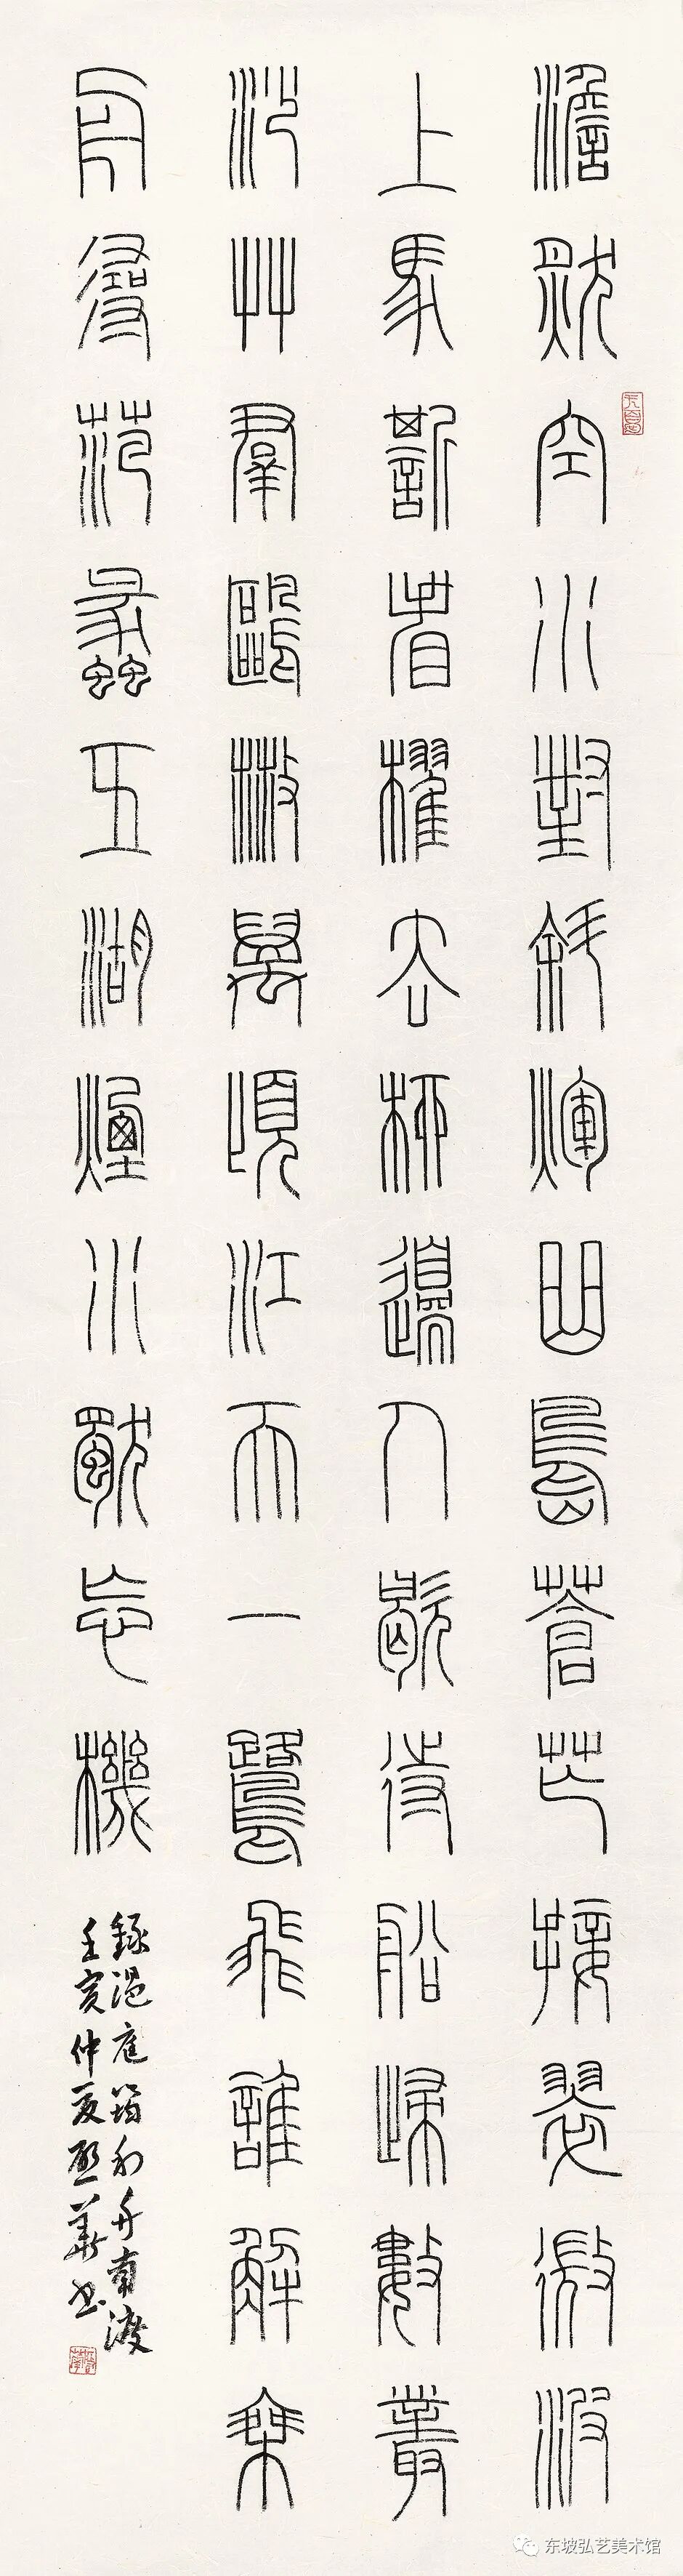 澹然空水對斜煇曲島蒼茫接翠微波
上馬嘶看櫂去柳邊人歇待船歸數叢
沙艸羣鷗散萬頃江天一鷺飛誰解乘
舟尋范蠡五湖煙水獨忘機
錄溫庭筠利州南渡
壬寅仲夏華书
东坡弘艺美术馆